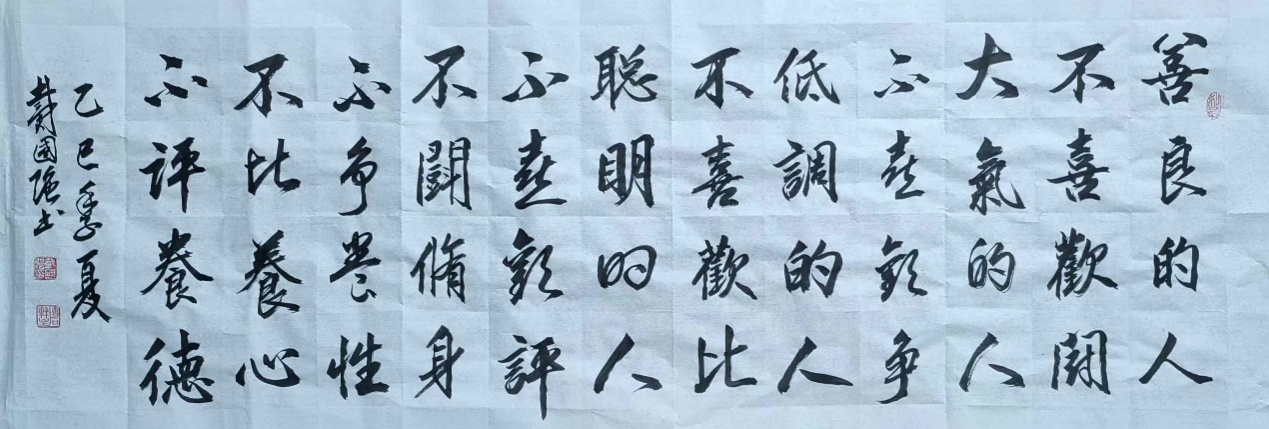 善良的人
不喜歡鬪
大氣的人
不喜歡争
低調的人
不喜歡比
聪明的人
不喜歡評
不闘脩身
不争养性
不比養心
不評養德
乙巳季夏
戴國強书